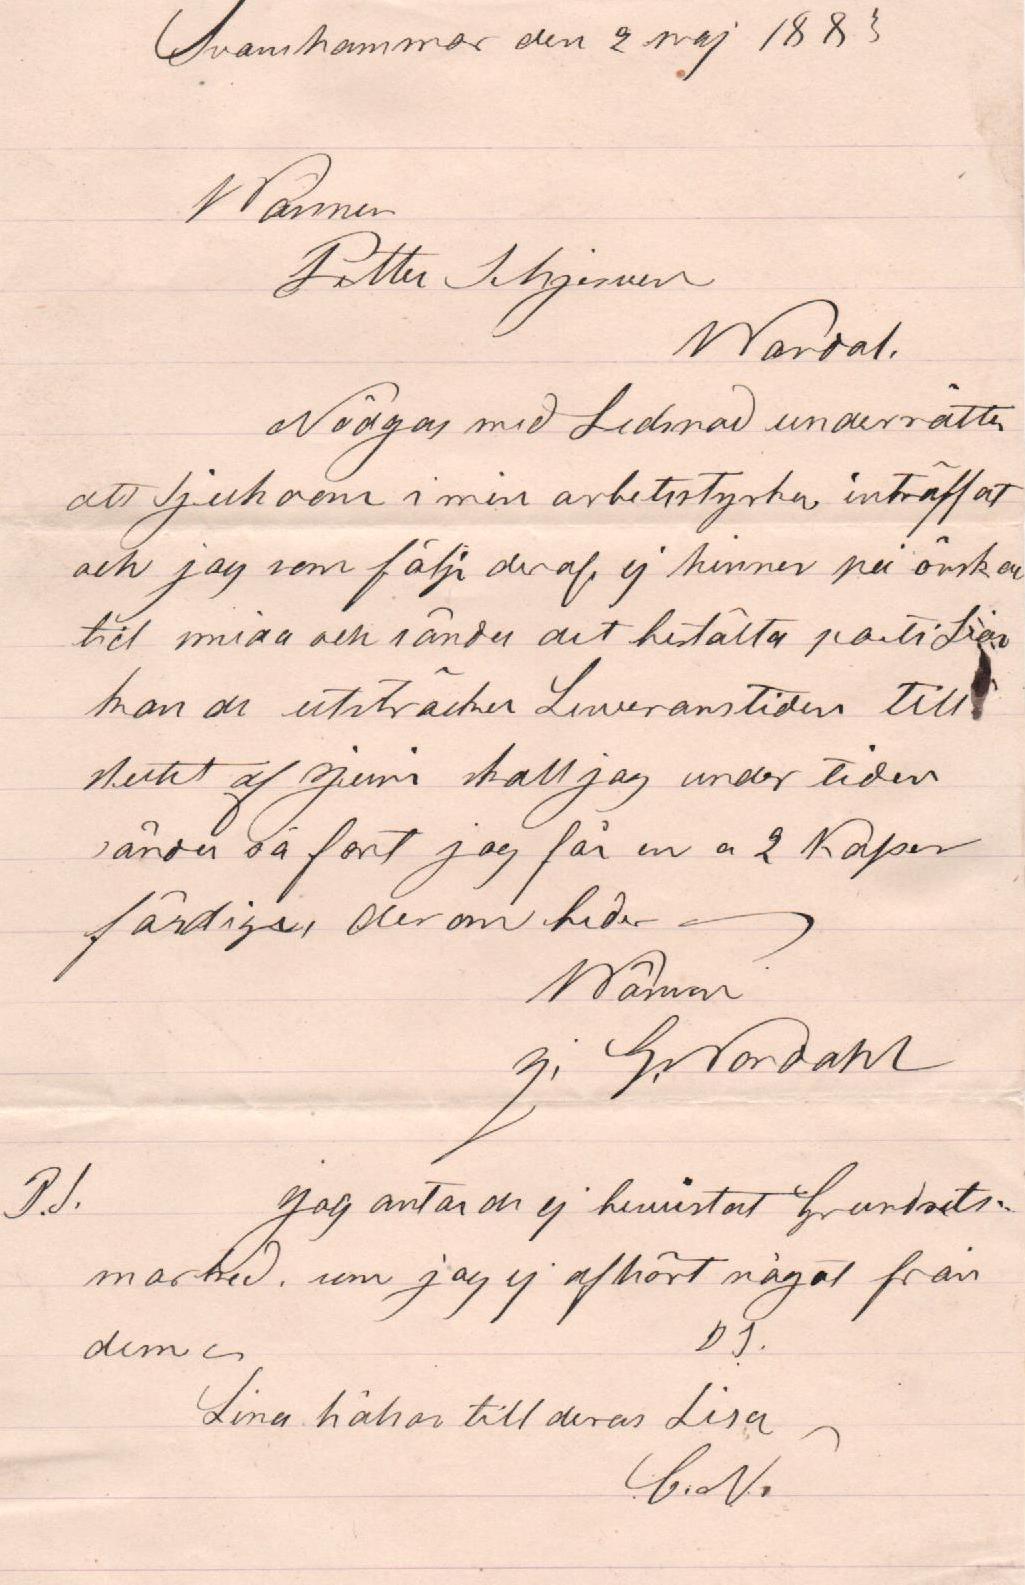 Svanshammar den 2 maj 1883
Wännen
Petter Schjesven
Wardal.
Nödgas med Ledsnad underrätta
att sjukdom i min arbetsstyrka inträffat
och jag som följe deraf, ej hinner på önskad
tid smida och sända det bestälta parti Liar
kan de utsträcka Leveranstiden till
slutet af Juni skall jag under tiden
sända så fort jag får en a 2 Kaser
färdiga, derom beder
Wännen
G. Nordahl
P.S. jag antar de ej bevistat Grundsets-
marked. um jag ej afhört något från
dem
D S.
Lina hälsar till deras Lisa
C. N.